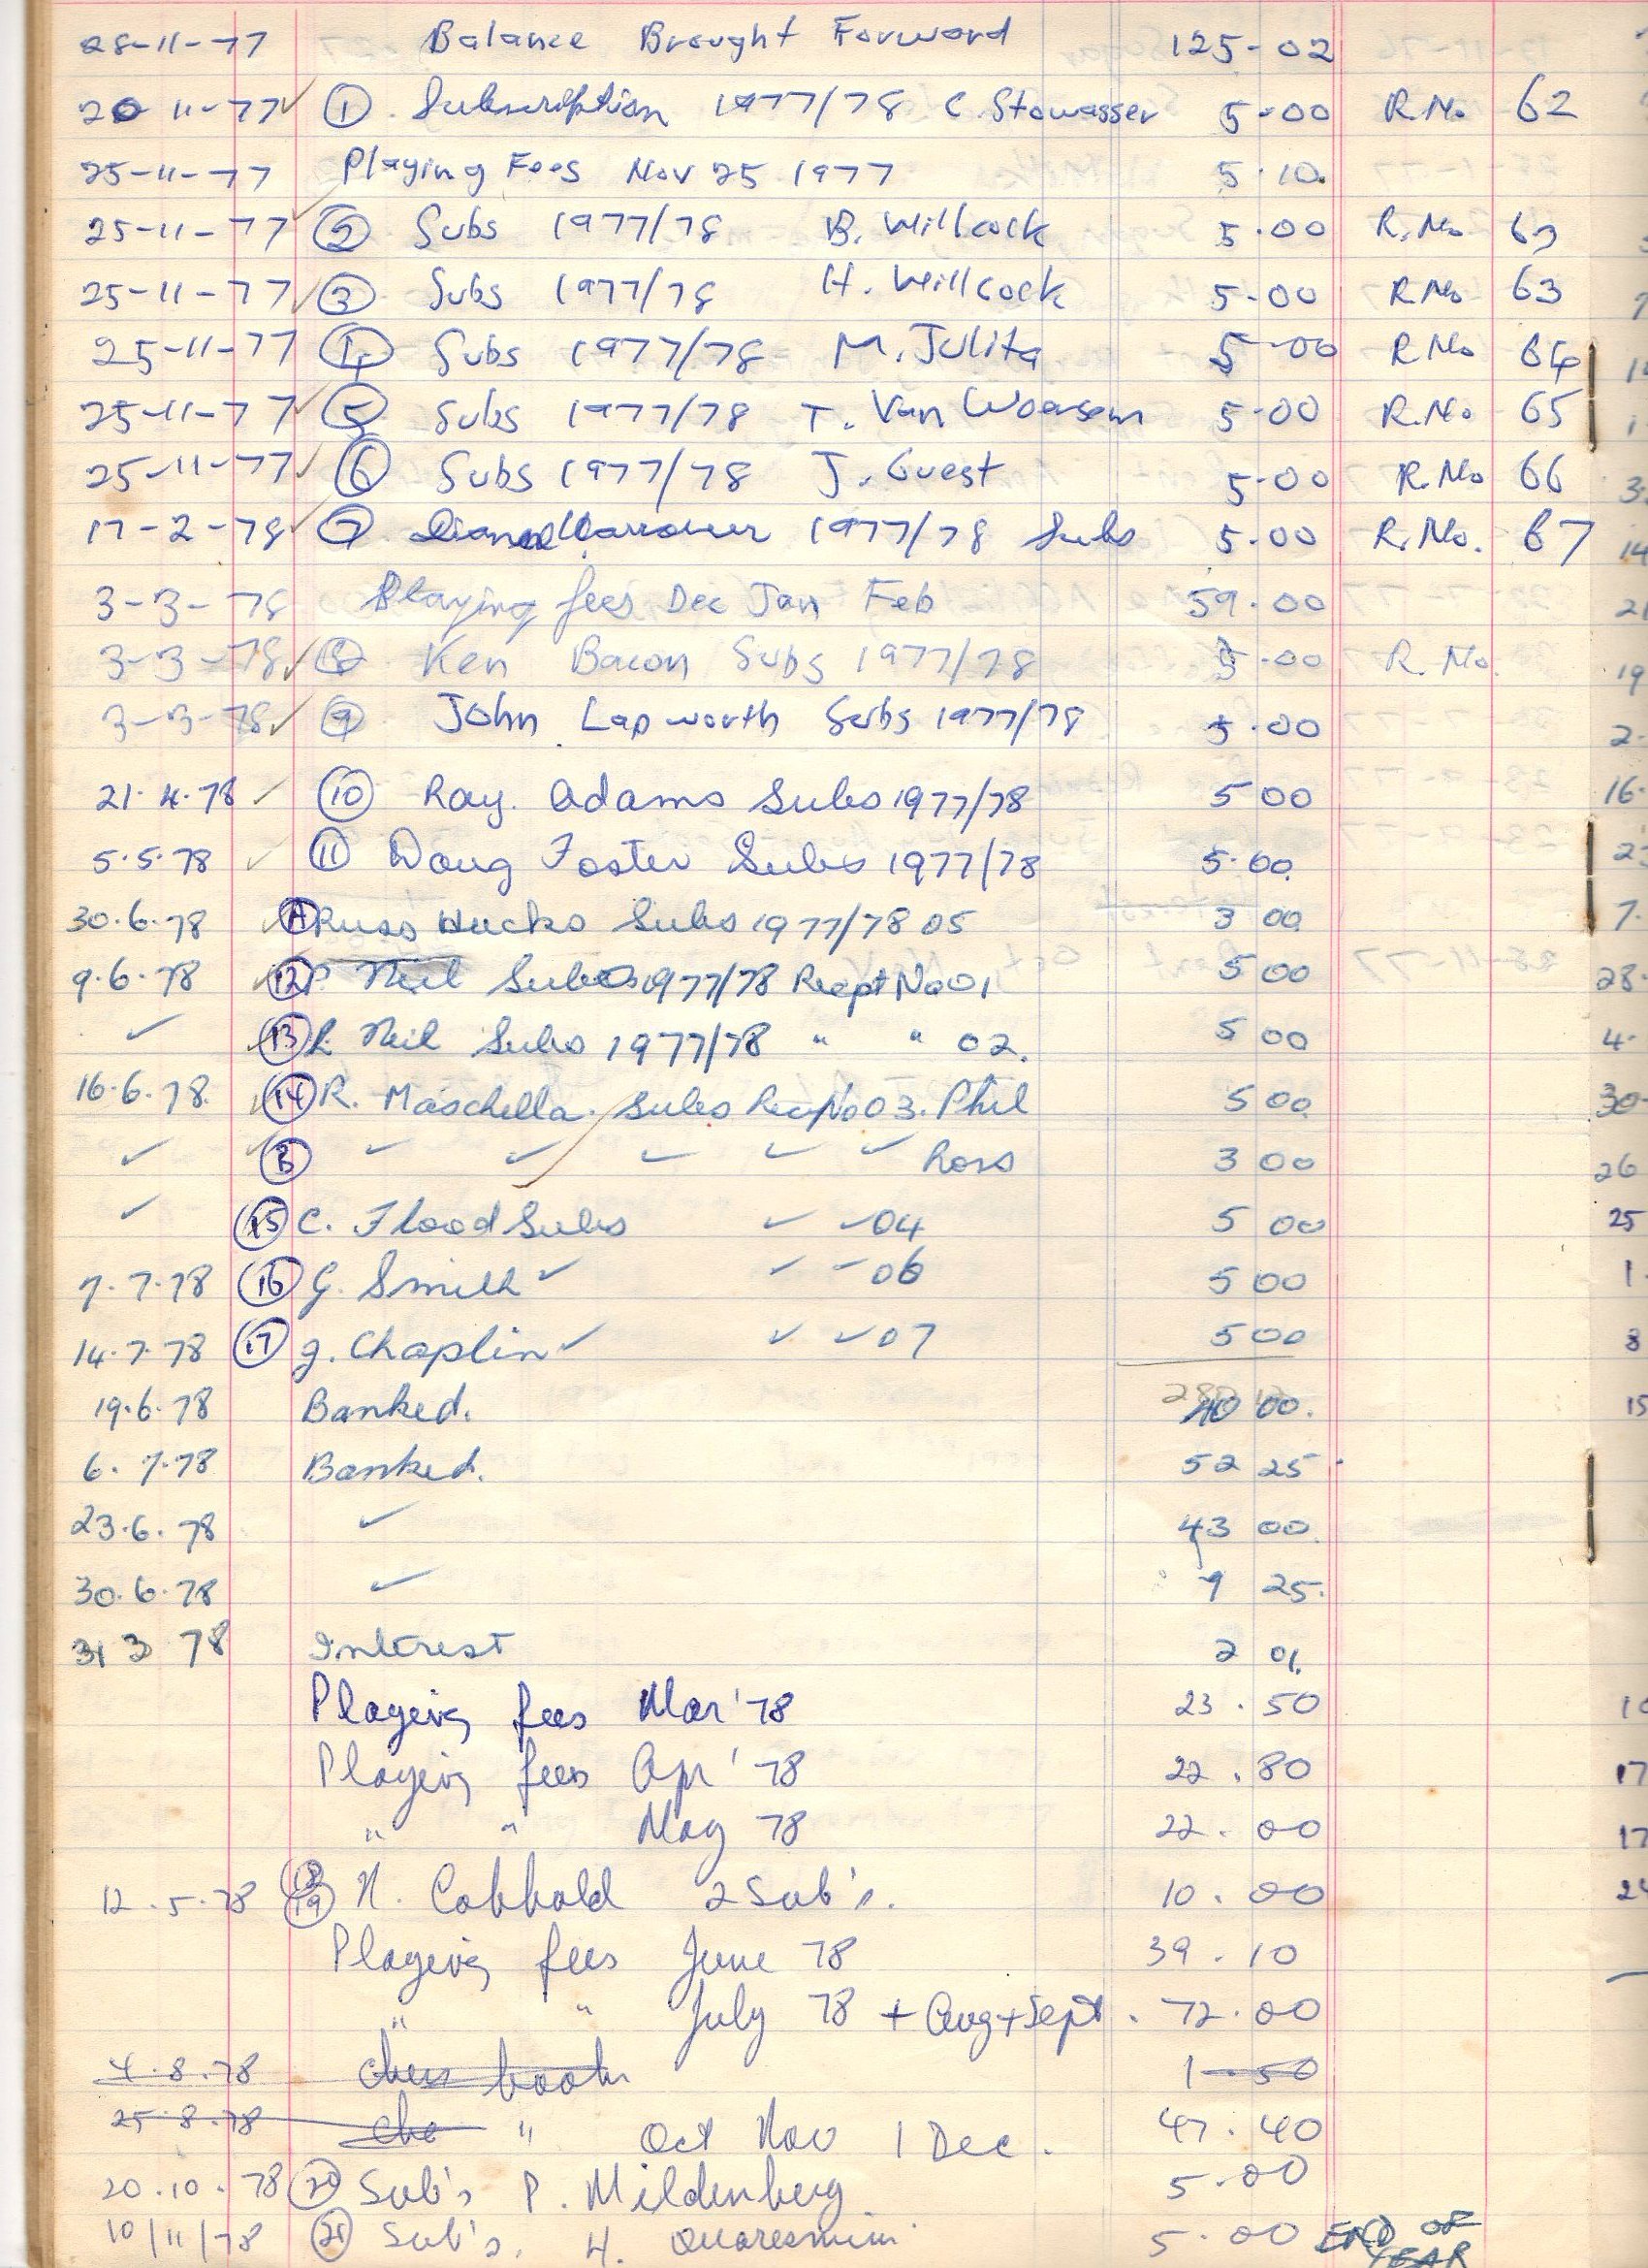 28-11-77 Balance Brought Forword 125-02
20 11-77 ✓ ① Subscription 1977/78 C. Stowasser 5-00 R.No 62
25-11-77 Playing Fees Nov 25 1977 5.10.
25-11-77 ✓ ② Subs 1977/78 B. Willcock 5.00 R.No 63
25-11-77 ✓ ③ Subs 1977/78 H. Willcock 5-00 R.No 63
25-11-77 ④ Subs 1977/78 M. Julita 5-00 R.No 64
25-11-77 ✓ ⑤ Subs 1977/78 T. Van Woersem 5-00 R.No 65
25-11-77 ✓ ⑥ Subs 1977/78 J. Guest 5-00 R.No 66
17-2-78 ✓ ⑦ 1977/78 Subs 5.00 R.No. 67
3-3-78 Playing fees Dec Jan Feb 59.00
3-3-78 ✓ ⑧ Ken Bacon Subs 1977/78 5.00 R.No.
3-3-78 ✓ ⑨ John Lapworth Subs 1977/78 5.00
21.4.78 ✓ ⑩ Ray. Adams Subs 1977/78 5 00
5.5.78 ✓ ⑪ Doug Foster Subs 1977/78 5.00.
30.6.78 Ⓐ Russ Hucks Subs 1977/78 05 3 00
9.6.78 ⑫ P. Neil Subs 1977/78 Recpt No 01 5 00
✓ ⑬ R. Neil Subs 1977/78 " " 02. 5 00
16.6.78. ⑭ R. Maschella. Subs Recp No 03. Phil 5 00
✓ Ⓑ ✓ ✓ ✓ ✓ ✓ Ross 3 00
✓ ⑮ C. Flood Subs ✓ ✓ 04 5 00
7.7.78 ⑯ G. Smith ✓ ✓ ✓ 06 5 00
14.7.78 ⑰ J. Chaplin ✓ ✓ ✓ 07 5 00
19.6.78 Banked. 40 00.
6.7.78 Banked. 52 25.
23.6.78 ✓ 43 00
30.6.78 ✓ 9 25.
31 3 78 Interest 2 01.
Playing fees Mar '78 23.50
Playing fees Apr '78 22.80
" " May 78 22.00
12.5.78 ⑱ ⑲ N. Cobbold 2 Sub's. 10.00
Playing fees June 78 39.10
" " July 78 + Aug + Sept. 72.00
4.8.78 chess book 1-50
25.8.78 che " Oct Nov 1 Dec. 47.40
20.10.78 ⑳ Sub's P. Mildenberg 5.00
10/11/78 ㉑ Sub's. H. Quaresmini 5.00 END OF
YEAR